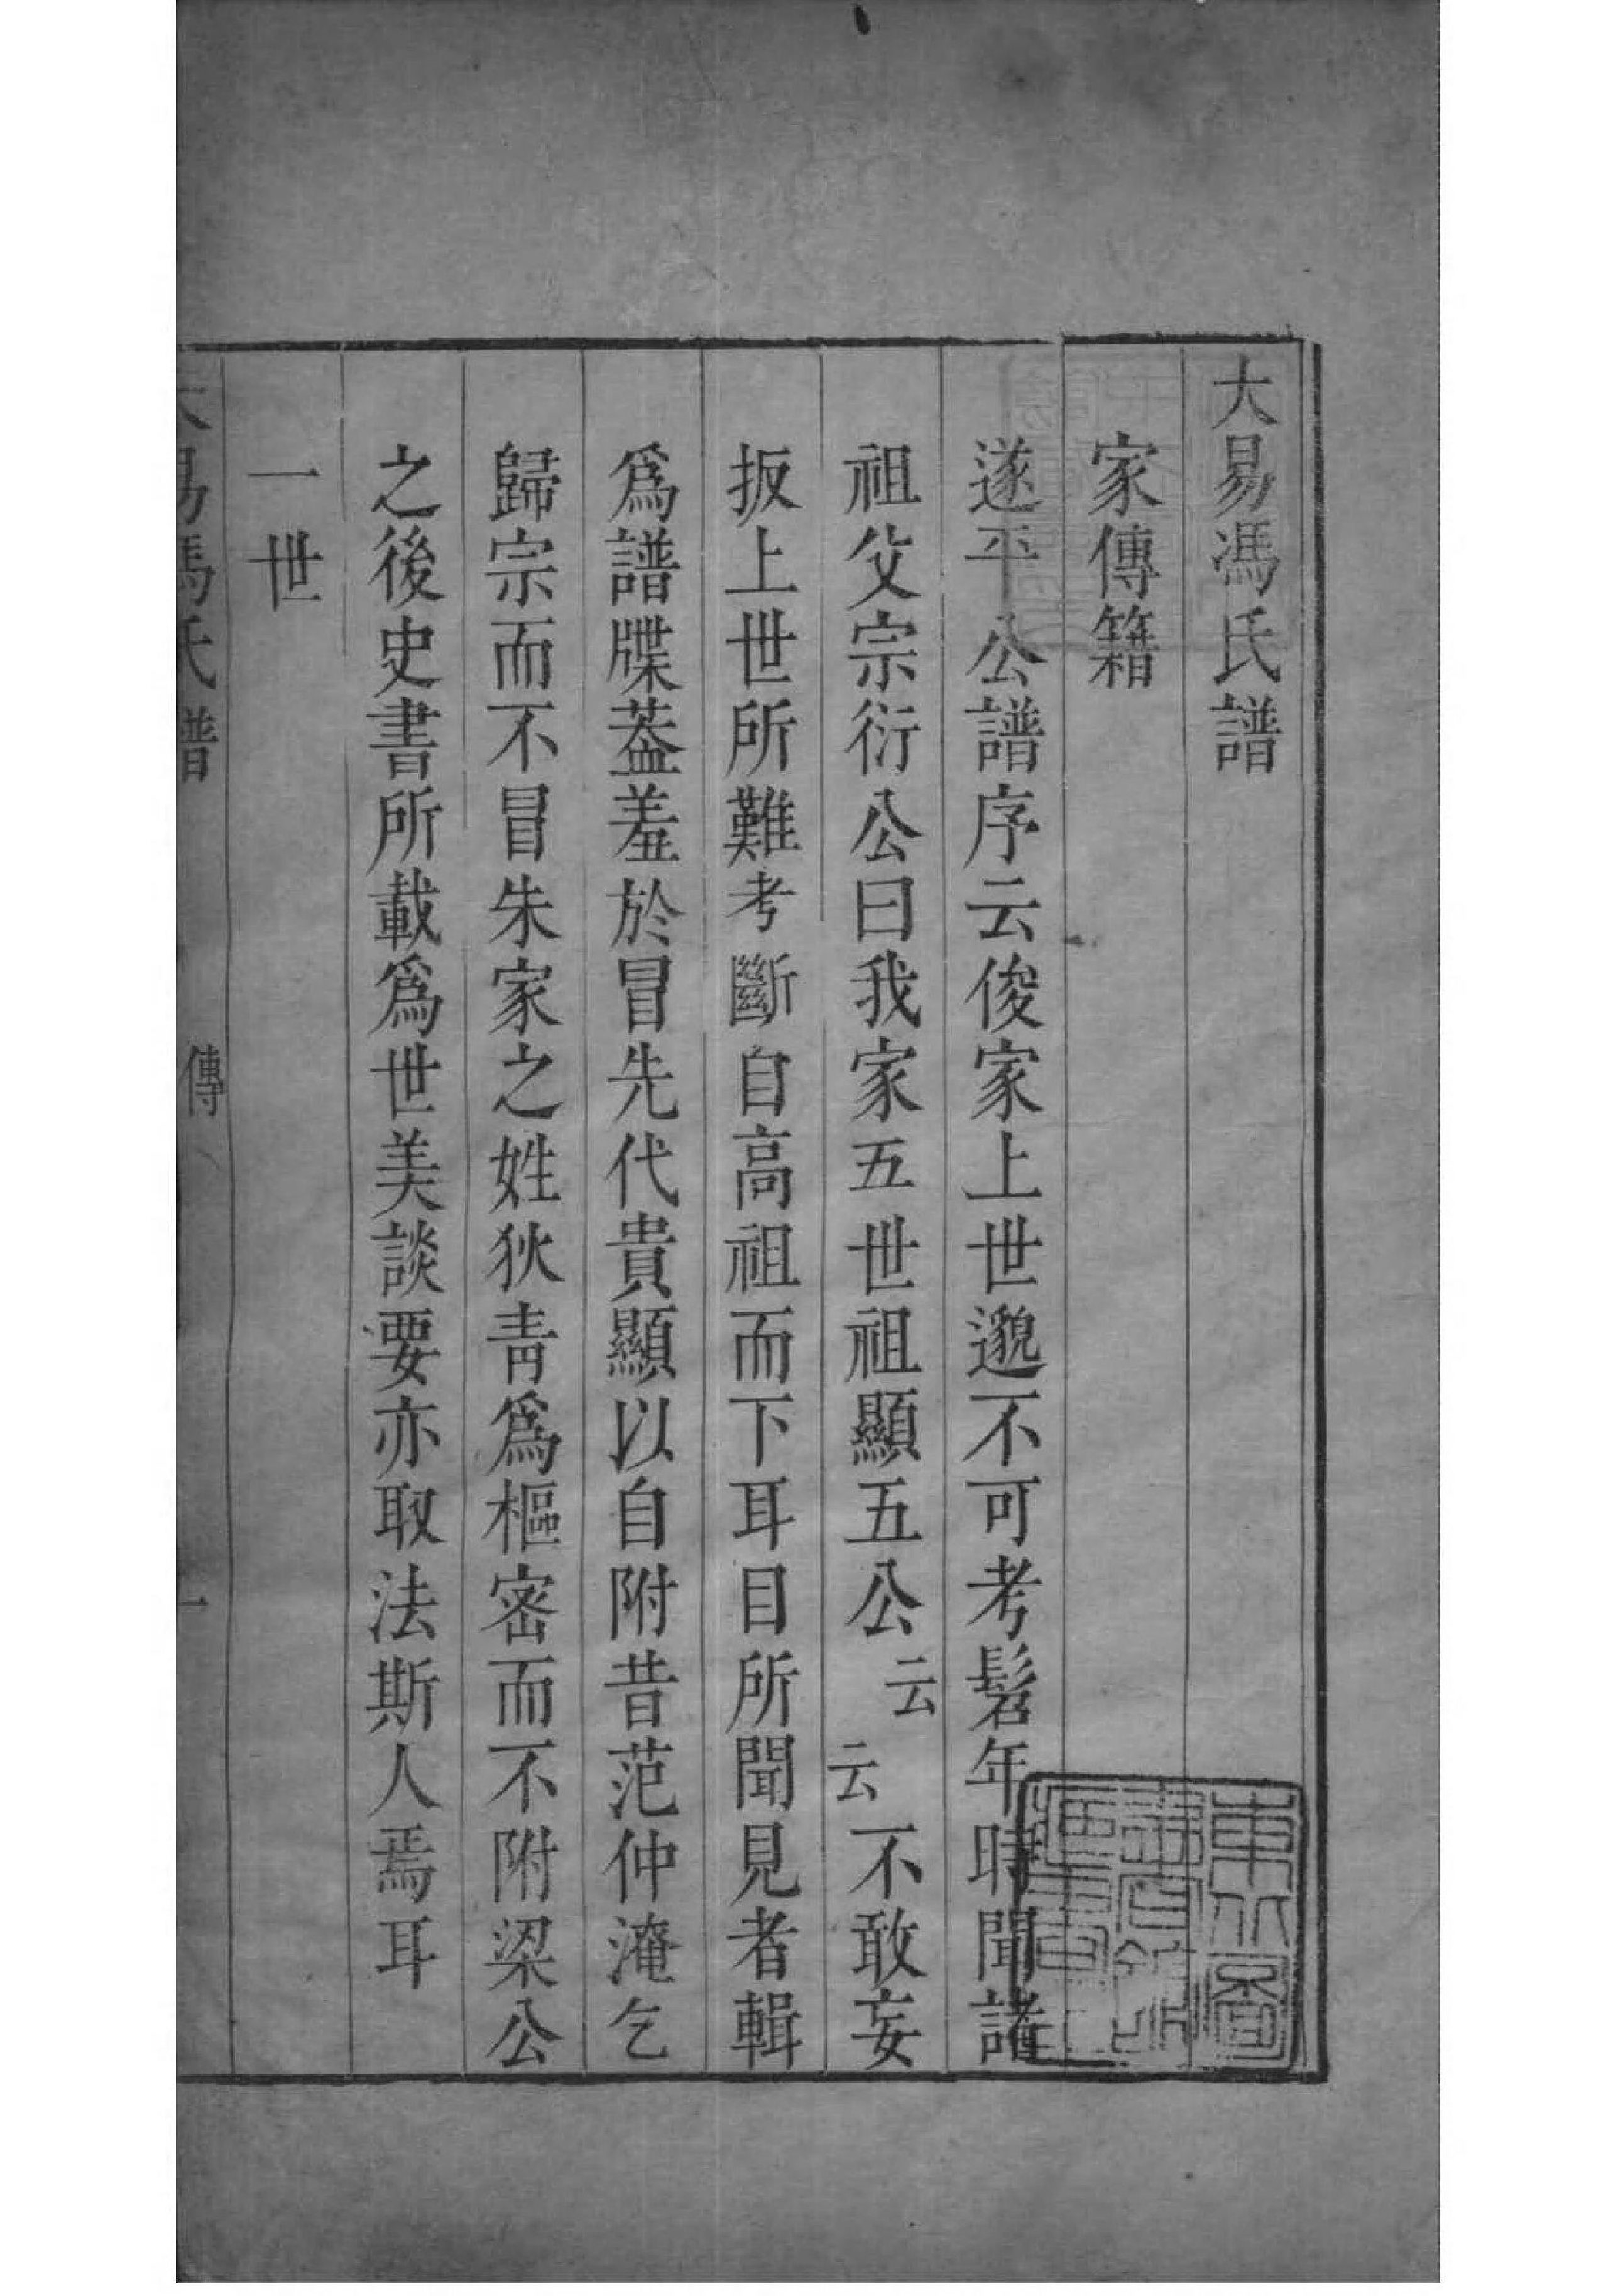 大易馮氏譜
家傳籍
遂平公譜序云俊家上世邈不可考髫年時聞諸
祖父宗衍公曰我家五世祖顯五公云云不敢妄
扳上世所難考斷自高祖而下耳目所聞見者輯
爲譜牒葢羞於冒先代貴顯以自附昔范仲淹乞
歸宗而不冒朱家之姓狄青爲樞密而不附梁公
之後史書所載爲世美談要亦取法斯人焉耳
一世
大易馮氏譜 傳 一